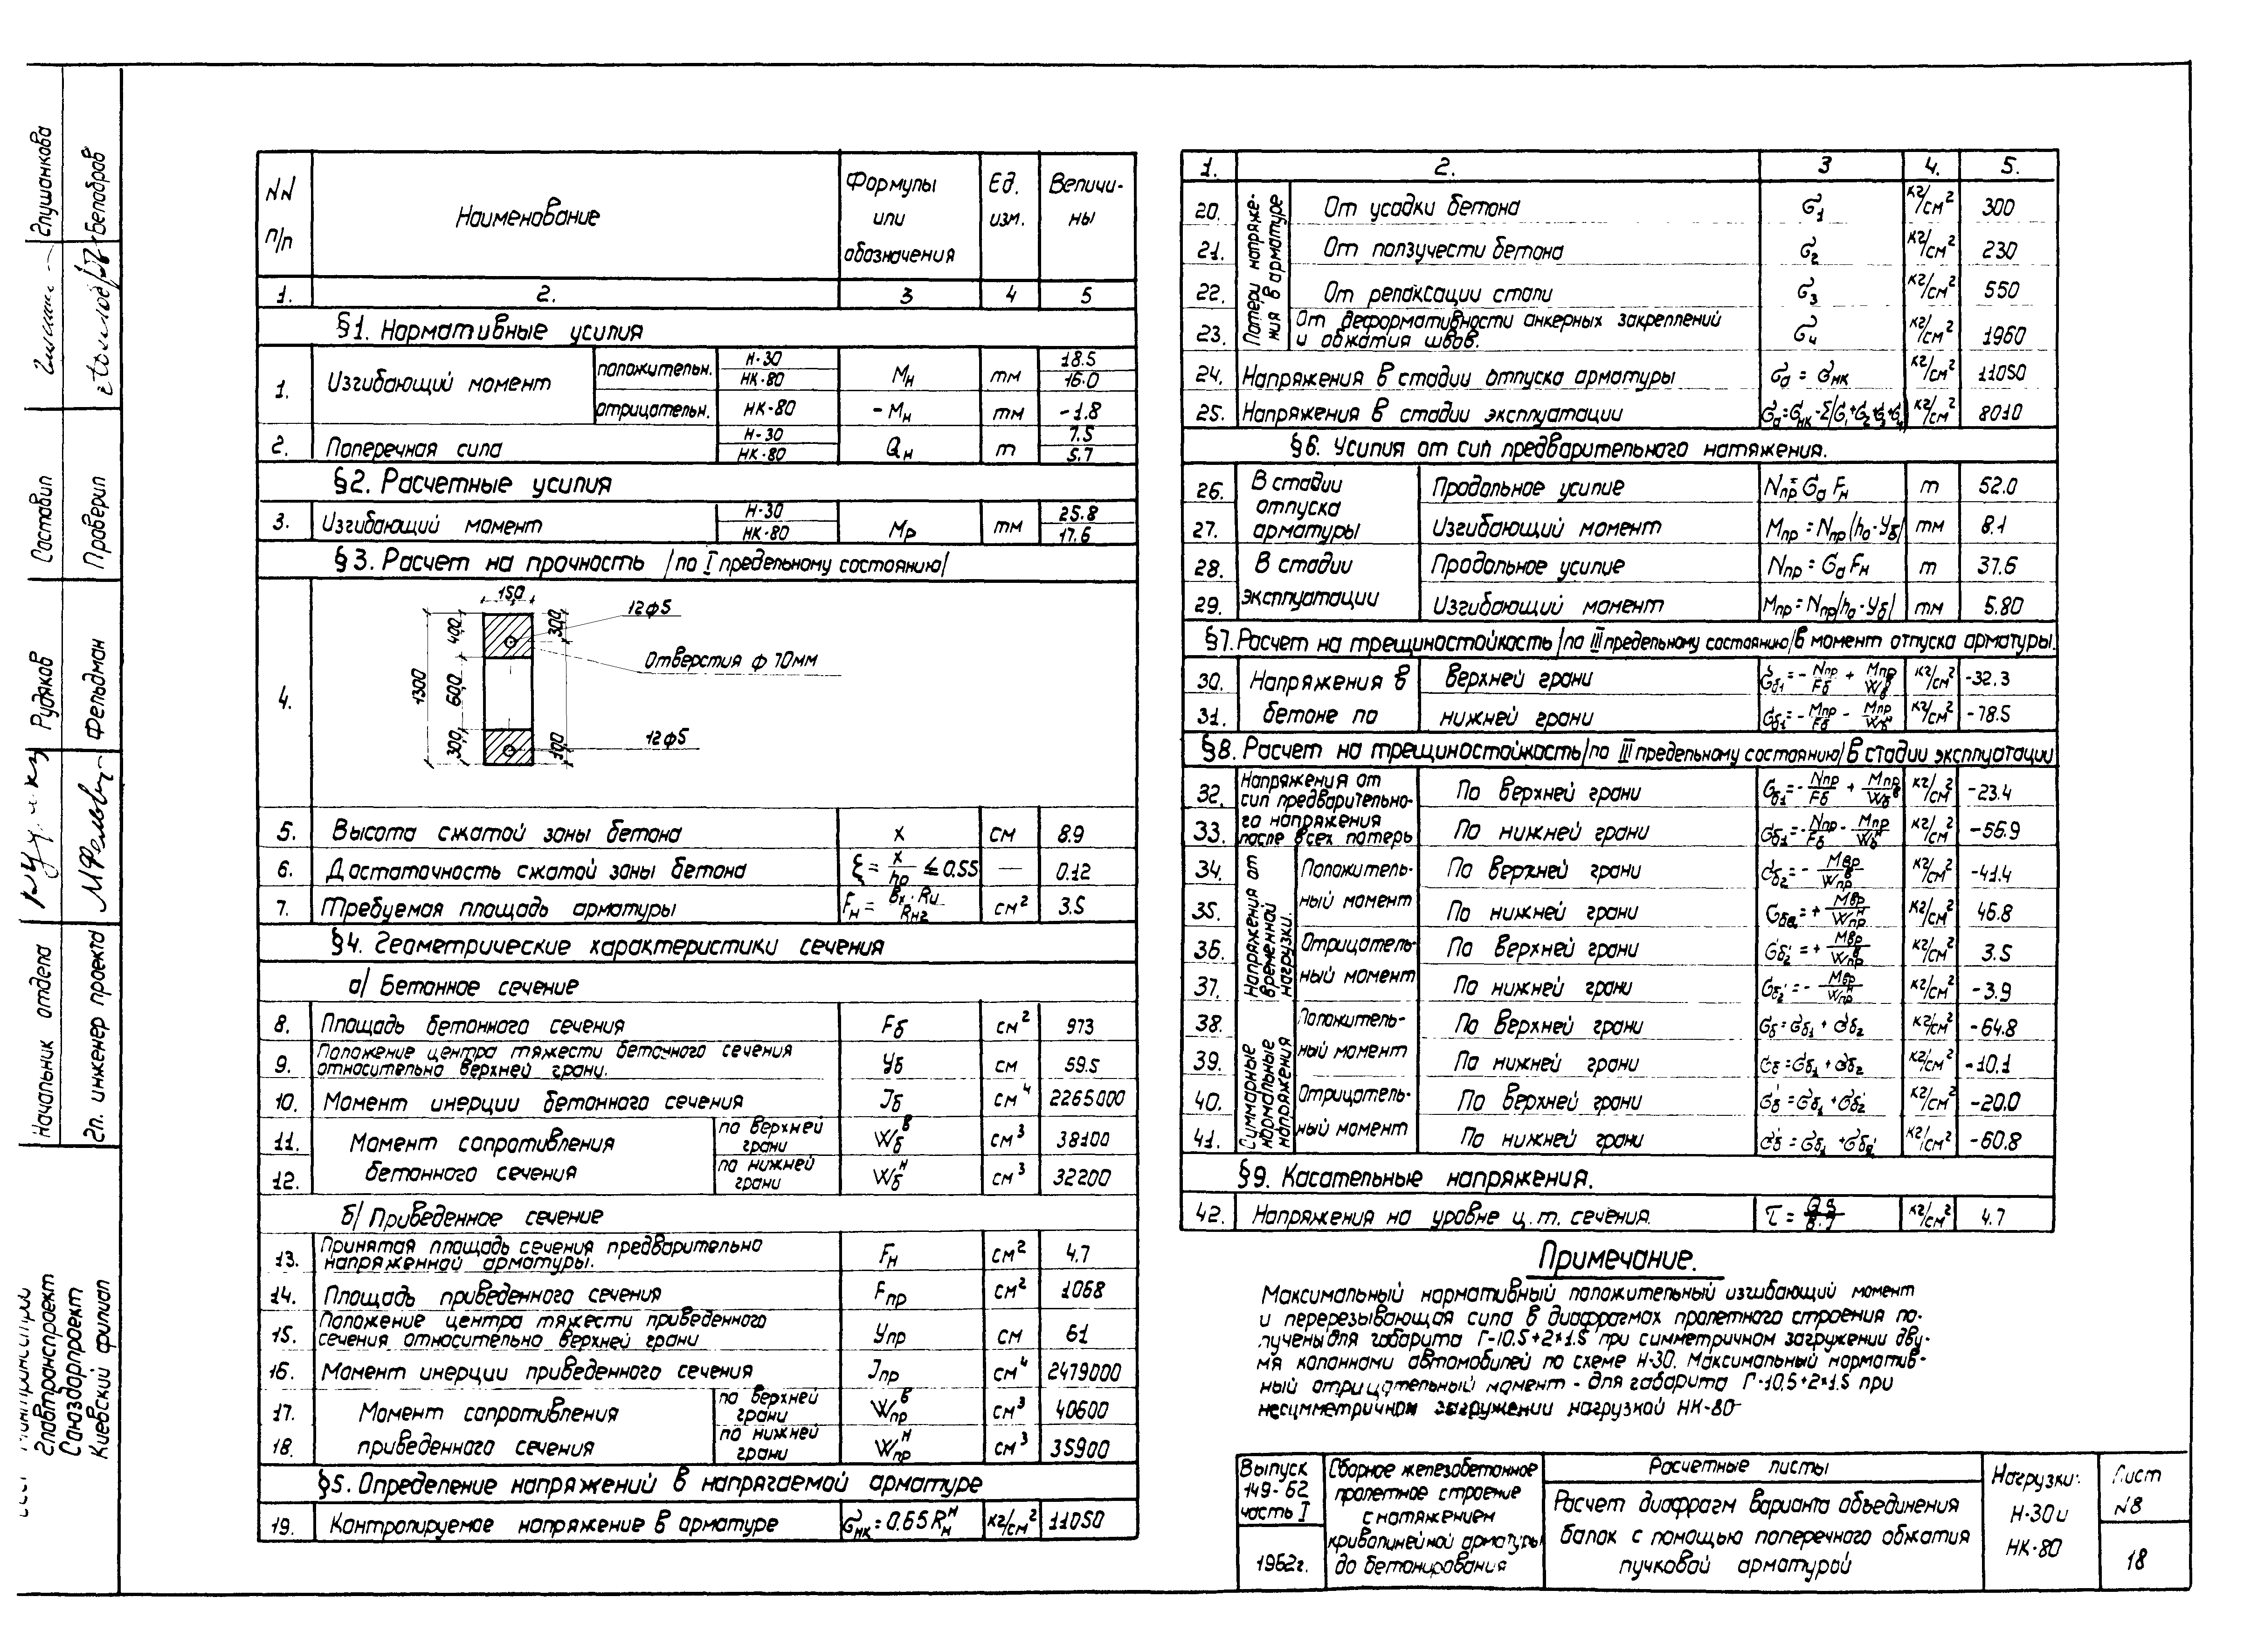 NN п/п | Наименование | Формулы или обозначения | Ед. изм. | Величины
1. | 2. | 3 | 4 | 5
§1. Нормативные усилия
1. | Изгибающий момент | положительн. | Н-30 | Mн | тм | 18.5
НК-80 | 16.0
отрицательн. | НК-80 | -Mн | тм | -1.8
2. | Поперечная сила | Н-30 | Qн | т | 7.5
НК-80 | 5.7
§2. Расчетные усилия
3. | Изгибающий момент | Н-30 | Mр | тм | 25.8
НК-80 | 17.6
§3. Расчет на прочность /по I предельному состоянию/
4.
15,0
12ф5
1300
40,0
60,0
30,0
30,0
100
Отверстия ф 70мм
12ф5
5. | Высота сжатой зоны бетона | x | см | 8.9
6. | Достаточность сжатой зоны бетона | ξ = x/h₀ ≤ 0.55 | — | 0.12
7. | Требуемая площадь арматуры | Fн = Bx·Rи/Rн2 | см² | 3.5
§4. Геометрические характеристики сечения
а/ Бетонное сечение
8. | Площадь бетонного сечения | Fб | см² | 973
9. | Положение центра тяжести бетонного сечения относительно верхней грани. | Yб | см | 59.5
10. | Момент инерции бетонного сечения | Jб | см⁴ | 2265000
11. | Момент сопротивления бетонного сечения | по верхней грани | Wбᴮ | см³ | 38100
12. | по нижней грани | Wбᴴ | см³ | 32200
б/ Приведенное сечение
13. | Принятая площадь сечения предварительно напряженной арматуры. | Fн | см² | 4.7
14. | Площадь приведенного сечения | Fпр | см² | 1068
15. | Положение центра тяжести приведенного сечения относительно верхней грани | Yпр | см | 61
16. | Момент инерции приведенного сечения | Jпр | см⁴ | 2479000
17. | Момент сопротивления приведенного сечения | по верхней грани | Wпрᴮ | см³ | 40600
18. | по нижней грани | Wпрᴴ | см³ | 35900
§5. Определение напряжений в напрягаемой арматуре
19. | Контролируемое напряжение в арматуре | σнк = 0.65 Rнᴴ | кг/см² | 11050
1. | 2. | 3 | 4. | 5.
Потери напряжения в арматуре
20. | От усадки бетона | σ₁ | кг/см² | 300
21. | От ползучести бетона | σ₂ | кг/см² | 230
22. | От релаксации стали | σ₃ | кг/см² | 550
23. | От деформативности анкерных закреплений и обжатия швов. | σ₄ | кг/см² | 1960
24. | Напряжения в стадии отпуска арматуры | σa = σнк | кг/см² | 11050
25. | Напряжения в стадии эксплуатации | σa=σнк-Σ/σ₁+σ₂+σ₃+σ₄/ | кг/см² | 8010
§6. Усилия от сил предварительного натяжения.
26. | В стадии отпуска арматуры | Продольное усилие | Nпр = σa Fн | т | 52.0
27. | Изгибающий момент | Mпр = Nпр/h₀-Yб/ | тм | 8.1
28. | В стадии эксплуатации | Продольное усилие | Nпр = σa Fн | т | 37.6
29. | Изгибающий момент | Mпр = Nпр/h₀-Yб/ | тм | 5.80
§7. Расчет на трещиностойкость /по III предельному состоянию/ в момент отпуска арматуры.
30. | Напряжения в бетоне по | верхней грани | σб₁ = - Nпр/Fб + Mпр/Wбᴮ | кг/см² | -32.3
31. | нижней грани | σб₁ = - Mпр/Fб - Mпр/Wбᴴ | кг/см² | -78.5
§8. Расчет на трещиностойкость /по III предельному состоянию/ в стадии эксплуатации
32. | Напряжения от сил предварительного напряжения после всех потерь | По верхней грани | σб₁ = - Nпр/Fб + Mпр/Wбᴮ | кг/см² | -23.4
33. | По нижней грани | σб₁ = - Nпр/Fб - Mпр/Wбᴴ | кг/см² | -56.9
Напряжения от временной нагрузки.
34. | Положительный момент | По верхней грани | σб₂ = - Mвр/Wпрᴮ | кг/см² | -41.4
35. | По нижней грани | σб₂ = + Mвр/Wпрᴴ | кг/см² | 46.8
36. | Отрицательный момент | По верхней грани | σб₂' = + Mвр/Wпрᴮ | кг/см² | 3.5
37. | По нижней грани | σб₂' = - Mвр/Wпрᴴ | кг/см² | -3.9
Суммарные нормальные напряжения
38. | Положительный момент | По верхней грани | σб = σб₁ + σб₂ | кг/см² | -64.8
39. | По нижней грани | σб = σб₁ + σб₂ | кг/см² | -10.1
40. | Отрицательный момент | По верхней грани | σб' = σб₁ + σб₂' | кг/см² | -20.0
41. | По нижней грани | σб' = σб₁ + σб₂' | кг/см² | -60.8
§9. Касательные напряжения.
42. | Напряжения на уровне ц.т. сечения. | τ = | кг/см² | 4.7
Примечание.
Максимальный нормативный положительный изгибающий момент
и перерезывающая сила в диафрагмах пролетного строения по-
лучены для габарита Г-10.5+2×1.5 при симметричном загружении дву-
мя колоннами автомобилей по схеме Н-30. Максимальный норматив-
ный отрицательный момент - для габарита Г-10.5+2×1.5 при
несимметричном загружении нагрузкой НК-80
Выпуск 149-62 часть I
1962г.
Сборное железобетонное пролетное строение с натяжением криволинейной арматуры до бетонирования
Расчетные листы
Расчет диафрагм варианта объединения балок с помощью поперечного обжатия пучковой арматурой
Нагрузки: Н-30 и НК-80
Лист N8
18
Составил
Глушанкова
Проверил
Белобров
Начальник отдела
Рудяков
Гл. инженер проекта
Фельдман
Главтранспроект
Союздорпроект
Киевский филиал